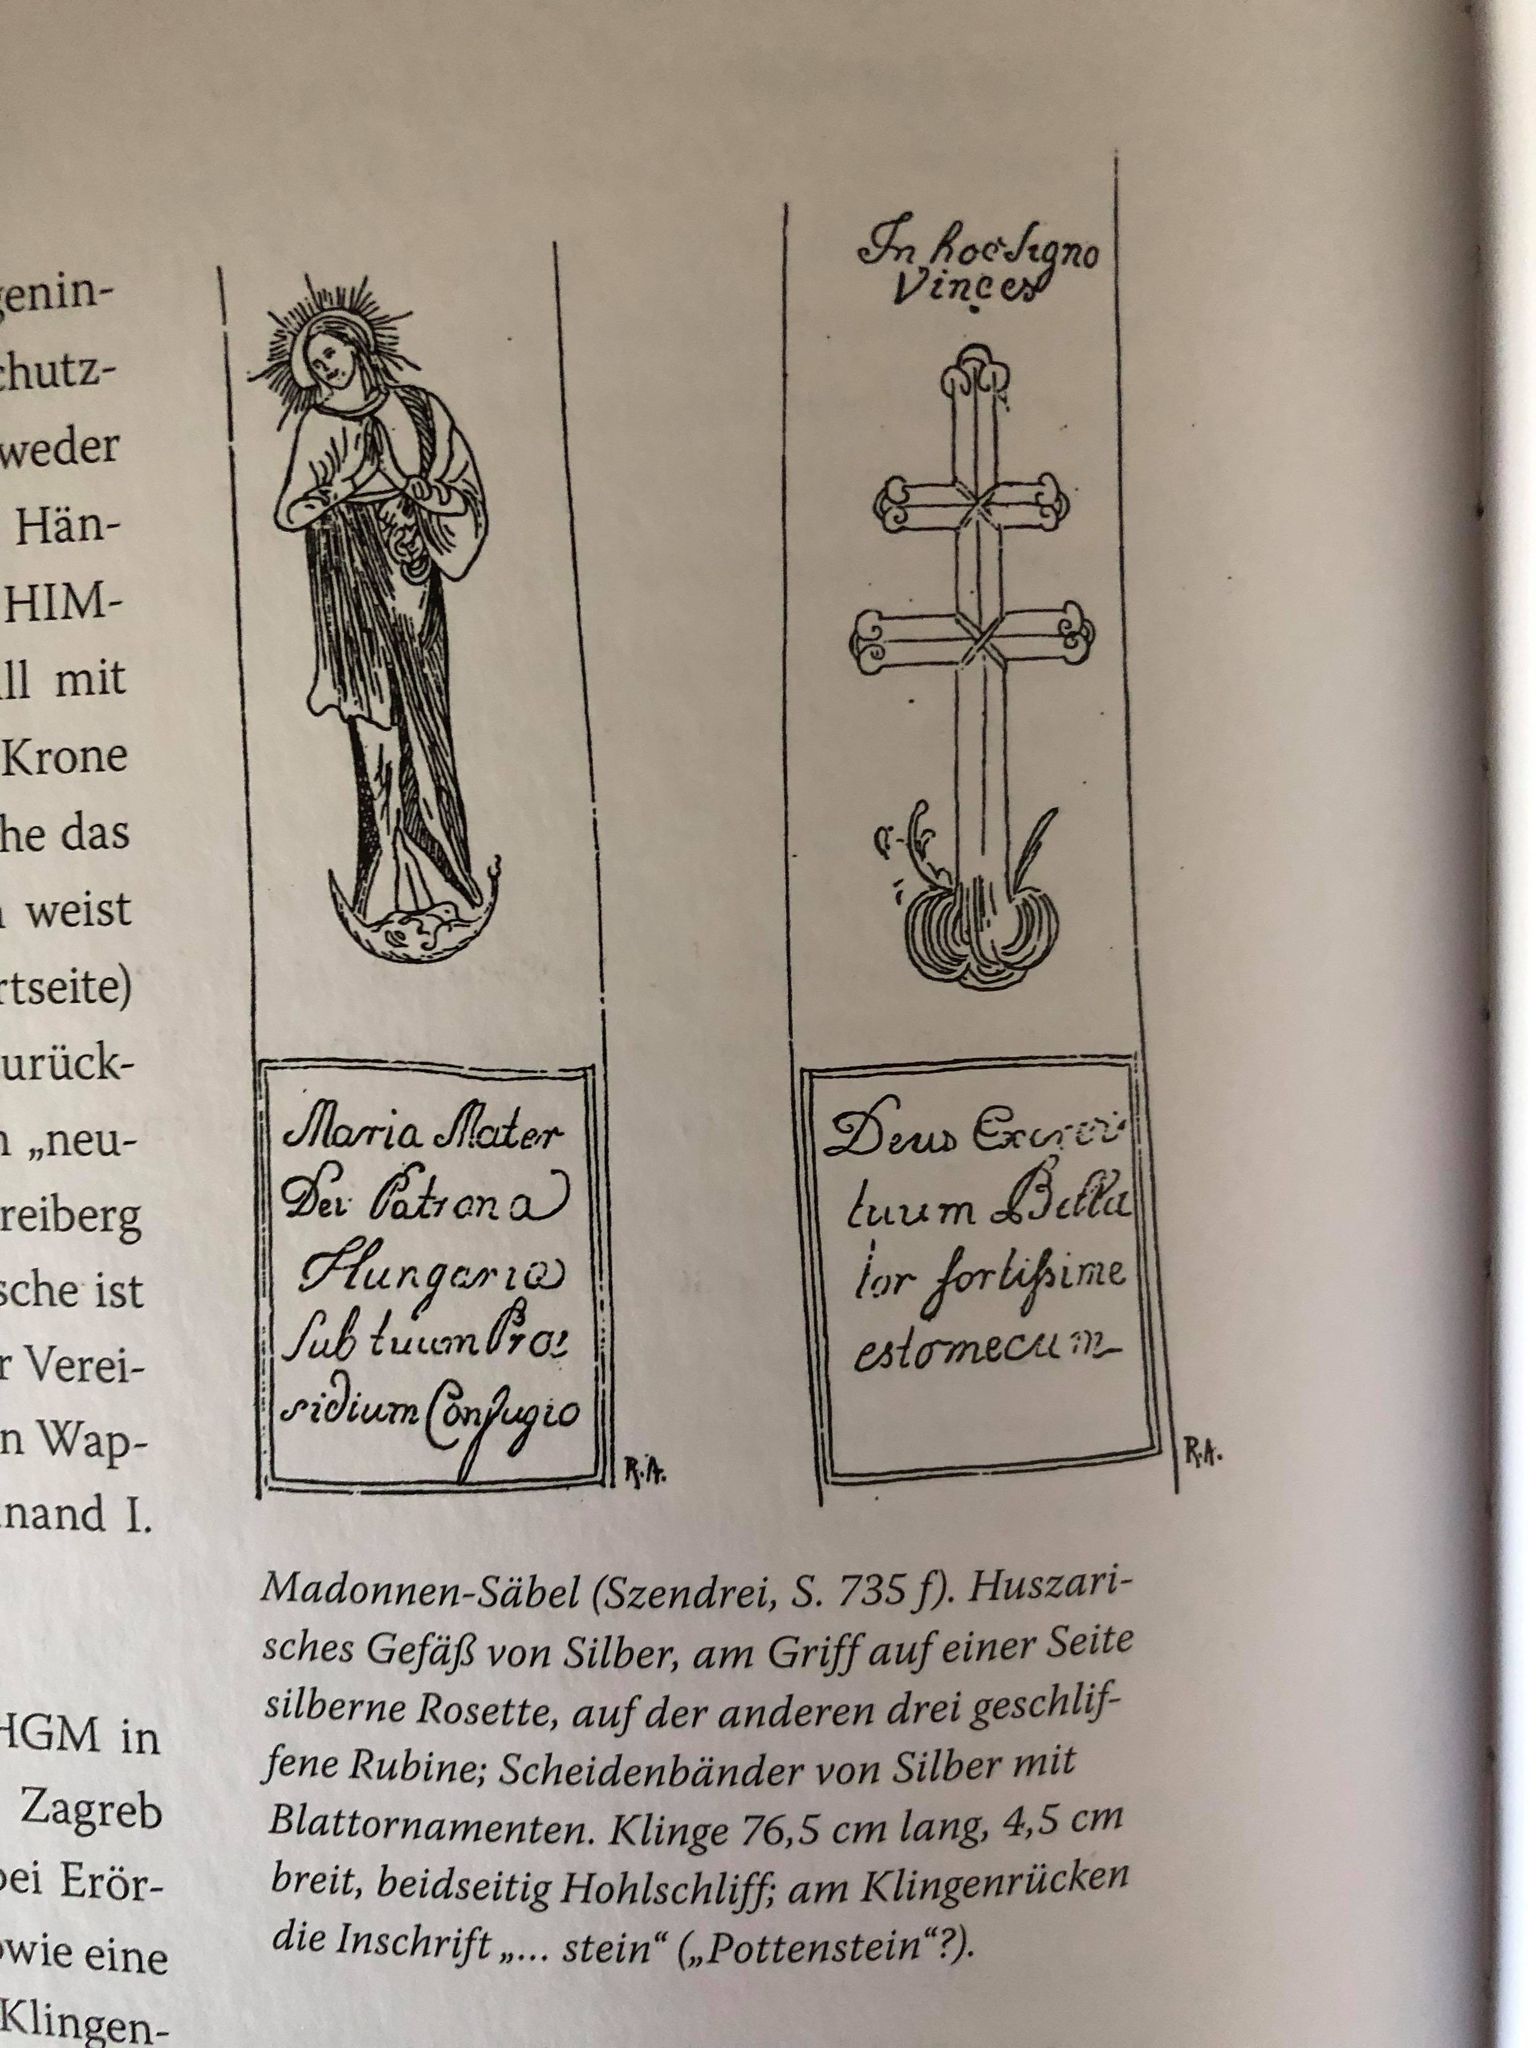 genin-
chutz-
weder
Hän-
HIM-
ll mit
Krone
he das
weist
rtseite)
urück-
„neu-
reiberg
sche ist
r Verei-
n Wap-
nand I.
HGM in
Zagreb
bei Erör-
owie eine
Klingen-
Maria Mater
Dei Patrona
Hungaria
sub tuum Præ
sidium Confugio
R.A.
In hoc signo
Vinces
Deus Exerci
tuum Bella
tor fortissime
esto mecum
R.A.
Madonnen-Säbel (Szendrei, S. 735 f). Huszari-
sches Gefäß von Silber, am Griff auf einer Seite
silberne Rosette, auf der anderen drei geschlif-
fene Rubine; Scheidenbänder von Silber mit
Blattornamenten. Klinge 76,5 cm lang, 4,5 cm
breit, beidseitig Hohlschliff; am Klingenrücken
die Inschrift „... stein“ („Pottenstein“?).